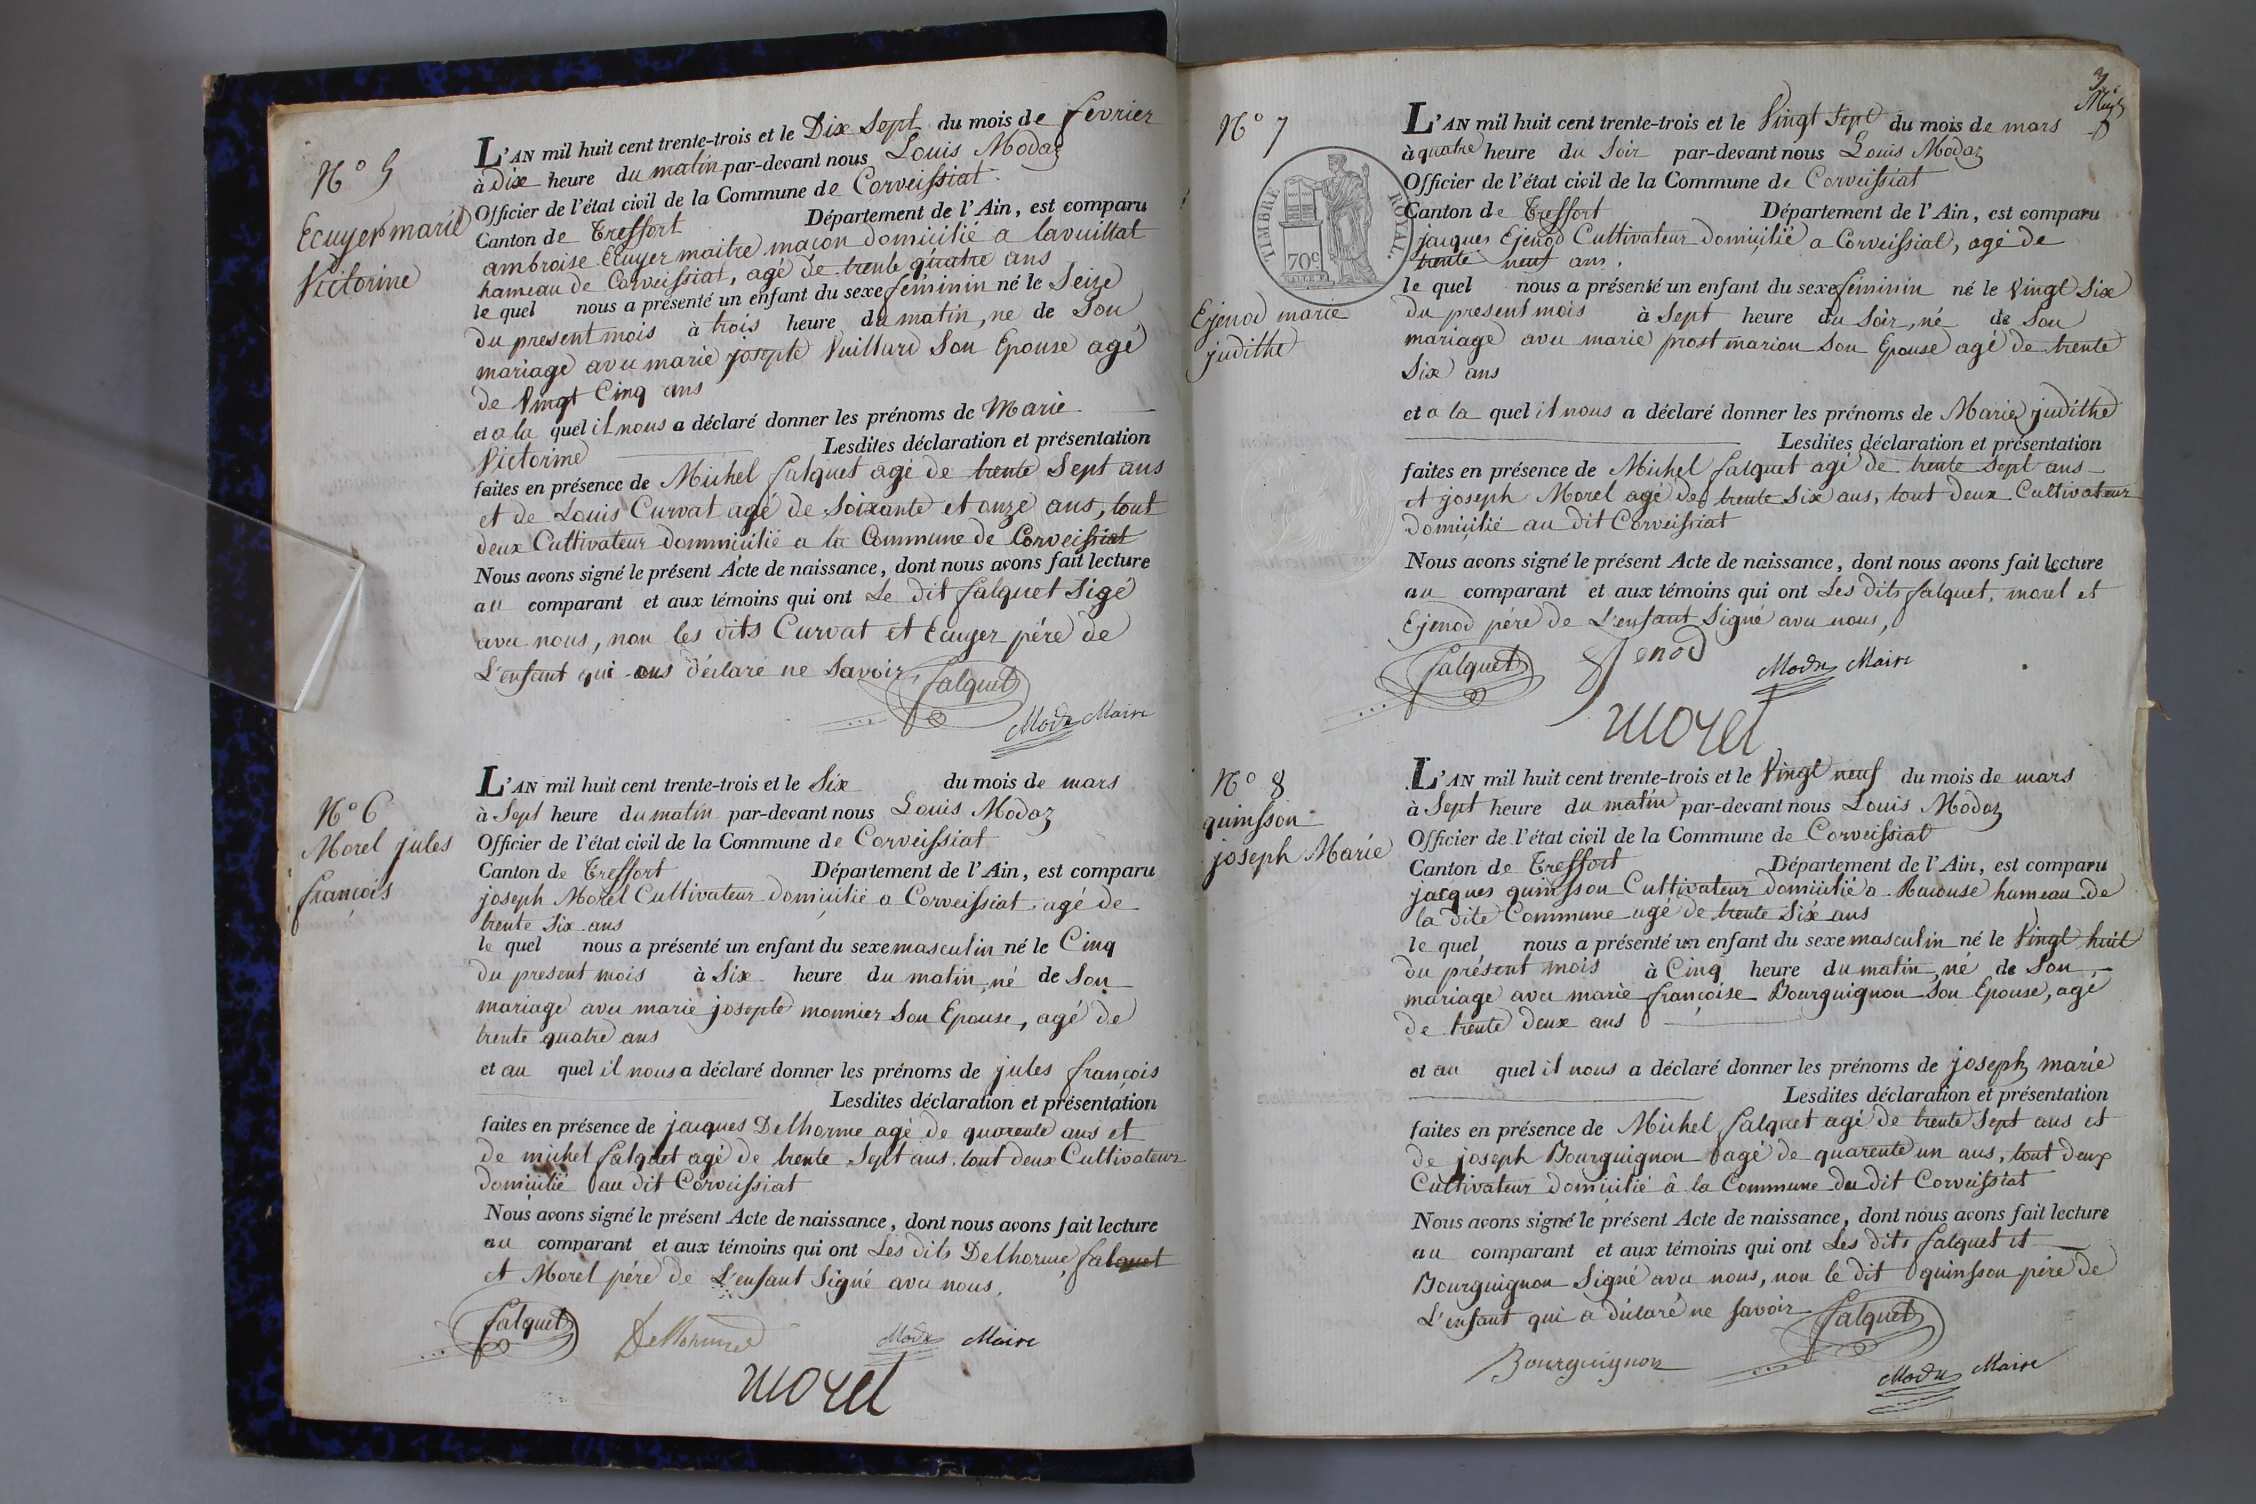 N° 5
Ecuyer marie
Victorine
L'AN mil huit cent trente-trois et le Dix Sept du mois de fevrier
à Dix heure du matin par-devant nous Louis Modaz
Officier de l'état civil de la Commune de Corveissiat
Canton de Treffort Département de l'Ain, est comparu
ambroise Ecuyer maitre maçon domicilié a lavuillat
hameau de Corveissiat, agé de trente quatre ans
le quel nous a présenté un enfant du sexe féminin né le Seize
du present mois à trois heure du matin, né de Son
mariage avec marie josephte Vuillard Son Epouse agé
de Vingt Cinq ans
et a la quel il nous a déclaré donner les prénoms de Marie
Victorine Lesdites déclaration et présentation
faites en présence de Michel falquet agé de trente Sept ans
et de Louis Curvat agé de Soixante et onze ans, tout
deux Cultivateur dommicilié a la Commune de Corveissiat
Nous avons signé le présent Acte de naissance, dont nous avons fait lecture
au comparant et aux témoins qui ont Le dit falquet Sigé
avec nous, non les dits Curvat et Ecuyer pére de
L'enfant qui ons déclaré ne Savoir,
falquet
Modaz Maire
N° 6
Morel jules
françois
L'AN mil huit cent trente-trois et le Six du mois de mars
à Sept heure du matin par-devant nous Louis Modaz
Officier de l'état civil de la Commune de Corveissiat
Canton de Treffort Département de l'Ain, est comparu
joseph Morel Cultivateur domicilié a Corveissiat, agé de
trente Six ans
le quel nous a présenté un enfant du sexe masculin né le Cinq
du present mois à Six heure du matin, né de Son
mariage avec marie josephte monnier Son Epouse, agé de
trente quatre ans
et au quel il nous a déclaré donner les prénoms de jules françois
Lesdites déclaration et présentation
faites en présence de jacques Delhorme agé de quarente ans et
de michel falquet agé de trente Sept ans, tout deux Cultivateur
domicilié au dit Corveissiat
Nous avons signé le présent Acte de naissance, dont nous avons fait lecture
au comparant et aux témoins qui ont Les dits Delhorme, falquet
et Morel pére de L'enfant Signé avec nous,
falquet Delhorme Modaz Maire
morel
3
N° 7
TIMBRE ROYAL.
70c
Ejenod marie
judithe
L'AN mil huit cent trente-trois et le Vingt Sept du mois de mars
à quatre heure du Soir par-devant nous Louis Modaz
Officier de l'état civil de la Commune de Corveissiat
Canton de Treffort Département de l'Ain, est comparu
jacques Ejenod Cultivateur domicilié a Corveissiat, agé de
trente neuf ans.
le quel nous a présenté un enfant du sexe féminin né le Vingt Six
du present mois à Sept heure du Soir, né de Son
mariage avec marie prost marion Son Epouse agé de trente
Six ans
et a la quel il nous a déclaré donner les prénoms de Marie judithe
Lesdites déclaration et présentation
faites en présence de Michel falquet agé de trente Sept ans
et joseph Morel agé de trente Six ans, tout deux Cultivateur
domicilié au dit Corveissiat
Nous avons signé le présent Acte de naissance, dont nous avons fait lecture
au comparant et aux témoins qui ont Les dits falquet, morel et
Ejenod pére de L'enfant Signé avec nous,
falquet Ejenod Modaz Maire
morel
N° 8
quinsson
joseph Marie
L'AN mil huit cent trente-trois et le Vingt neuf du mois de mars
à Sept heure du matin par-devant nous Louis Modaz
Officier de l'état civil de la Commune de Corveissiat
Canton de Treffort Département de l'Ain, est comparu
jacques quinsson Cultivateur domicilié a Racouse hameau de
la dite Commune agé de trente Six ans
le quel nous a présenté un enfant du sexe masculin né le Vingt huit
du présent mois à Cinq heure du matin, né de Son
mariage avec marie françoise Bourguignon Son Epouse, agé
de trente deux ans
et au quel il nous a déclaré donner les prénoms de joseph marie
Lesdites déclaration et présentation
faites en présence de Michel falquet agé de trente Sept ans et
de joseph Bourguignon agé de quarente un ans, tout deux
Cultivateur domicilié à la Commune du dit Corveissiat
Nous avons signé le présent Acte de naissance, dont nous avons fait lecture
au comparant et aux témoins qui ont Les dits falquet et
Bourguignon Signé avec nous, non le dit quinsson pére de
L'enfant qui a déclaré ne savoir
falquet
Bourguignon Modaz Maire